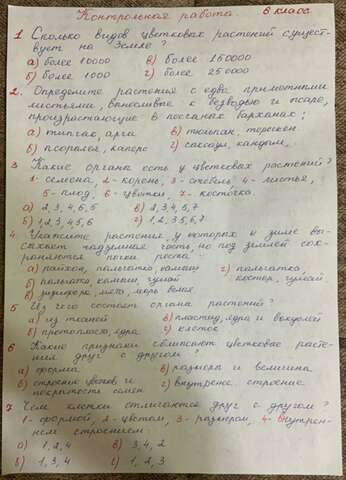 Контрольная работа. 6 класс
1. Сколько видов цветковых растений сущест-
вует на Земле?
а) более 10000 в) более 150000
б) более 1000 г) более 250000
2. Определите растения с едва приметными
листьями, выносливые к безводью и жаре,
произрастающие в песчаных барханах:
а) типчак, арча в) тюльпан, терескен
б) псоралея, каперс г) саксаул, кандым,
3. Какие органы есть у цветковых растений?
1- семена, 2- корень, 3- стебель, 4- листья,
5- плод, 6- цветки 7- косточка.
а) 2, 3, 4, 6, 5 в) 2, 3, 4, 5, 7
б) 1, 2, 3, 4, 5, 6 г) 1, 2, 3, 5, 6, 7
4. Укажите растения, у которых к зиме вы-
сыхает надземная часть, но под землей сох-
раняются почки роста
а) райхон, пальчатка, камыш г) пальчатка,
б) пальчатка, камыш, гумай костер, гумай
в) зизифора, мята, марь белая
5. Из чего состоят органы растений?
а) из тканей в) пластид, ядра и вакуолей
б) протопласта, ядра г) клеток
6. Какие признаки сближают цветковые расте-
ния друг с другом?
а) форма в) размера и величина
б) строение цветков и г) внутренее строение
покрытость семян
7. Чем клетки отличаются друг с другом?
1- формой, 2- цветом, 3- размером, 4- внутрен-
нем строением:
а) 1, 2, 4 в) 3, 4, 2
б) 1, 3, 4 г) 1, 2, 3